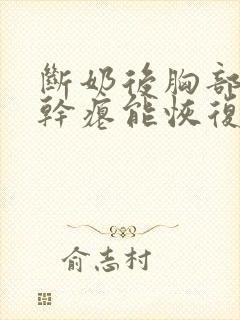 斷奶後胸部
幹癟能恢復
俞志村